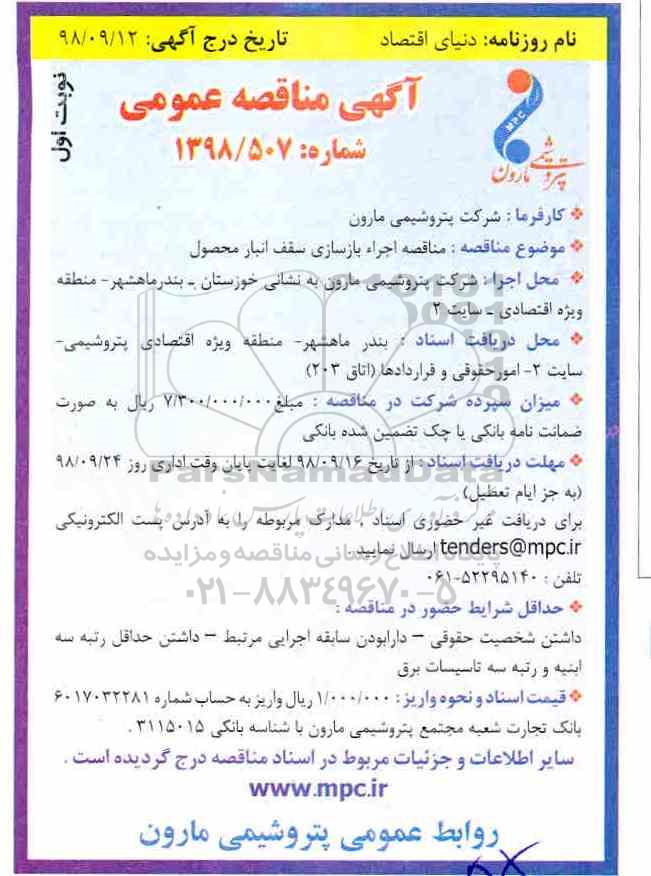 نام روزنامه: دنیای اقتصاد تاریخ درج آگهی: ۹۸/۰۹/۱۲
نوبت اول
آگهی مناقصه عمومی
شماره: ۱۳۹۸/۵۰۷
MPC
پتروشیمی مارون
کارفرما : شرکت پتروشیمی مارون
موضوع مناقصه : مناقصه اجراء بازسازی سقف انبار محصول
محل اجرا : شرکت پتروشیمی مارون به نشانی خوزستان ـ بندرماهشهر- منطقه
ویژه اقتصادی ـ سایت ۲
محل دریافت اسناد : بندر ماهشهر- منطقه ویژه اقتصادی پتروشیمی-
سایت ۲- امورحقوقی و قراردادها (اتاق ۲۰۳)
میزان سپرده شرکت در مناقصه : مبلغ ۷/۳۰۰/۰۰۰/۰۰۰ ریال به صورت
ضمانت نامه بانکی یا چک تضمین شده بانکی
مهلت دریافت اسناد : از تاریخ ۹۸/۰۹/۱۶ لغایت پایان وقت اداری روز ۹۸/۰۹/۲۴
(به جز ایام تعطیل)
برای دریافت غیر حضوری اسناد ، مدارک مربوطه را به آدرس پست الکترونیکی
tenders@mpc.ir ارسال نمایید .
تلفن : ۵۲۲۹۵۱۴۰-۰۶۱
حداقل شرایط حضور در مناقصه :
داشتن شخصیت حقوقی – دارابودن سابقه اجرایی مرتبط – داشتن حداقل رتبه سه
ابنیه و رتبه سه تاسیسات برق
قیمت اسناد و نحوه واریز : ۱/۰۰۰/۰۰۰ ریال واریز به حساب شماره ۶۰۱۷۰۳۲۲۸۱
بانک تجارت شعبه مجتمع پتروشیمی مارون با شناسه بانکی ۳۱۱۵۰۱۵ .
سایر اطلاعات و جزئیات مربوط در اسناد مناقصه درج گردیده است .
www.mpc.ir
روابط عمومی پتروشیمی مارون
ParsNamadData
پایگاه اطلاع رسانی مناقصه و مزایده
۰۲۱-۸۸۳۴۹۶۷۰-۵